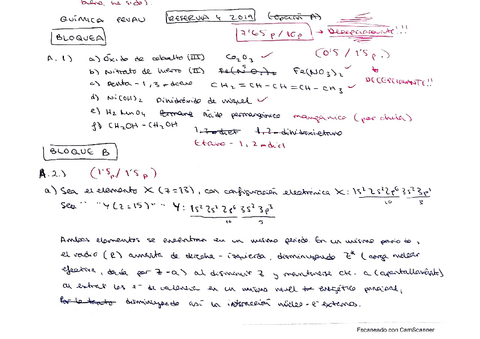 QUÍMICA PEVAU RESERVA 4 2019 (Opción A)
BLOQUE A 7'65 p / 10 p DECEPCIONANTE!!!
(0'5 / 1'5 p.)
A.1) a) Óxido de cobalto (III) Co2O3 ✓
b) Nitrato de hierro (II) Fe(NO3)2 ✓ DECEPCIONANTE!!
c) Penta-1,3-dieno CH2=CH-CH=CH-CH3 ✓
d) Ni(OH)2 Dihidróxido de níquel ✓
e) H2MnO4 Ácido permangánico mangánico
f) CH2OH-CH2OH 1,2-
Etano-1,2-diol
BLOQUE B
A.2.) (1'5p / 1'5p)
a) Sea el elemento X (Z=13), con configuración electrónica X: 1s2 2s2 2p6 3s2 3p1
Sea " " Y (Z=15)" " Y: 1s2 2s2 2p6 3s2 3p3
10 3
10 5
Ambos elementos se encuentran en un mismo periodo. En un mismo periodo,
el radio (R) aumenta de derecha-izquierda, disminuyendo Z* (carga nuclear
efectiva, dada por Z-a) al disminuir Z y mantenerse cte. a (apantallamiento)
al entrar los e- de valencia en un mismo nivel energético principal,
disminuyendo así la interacción núcleo-e- externos.
Escaneado con CamScanner